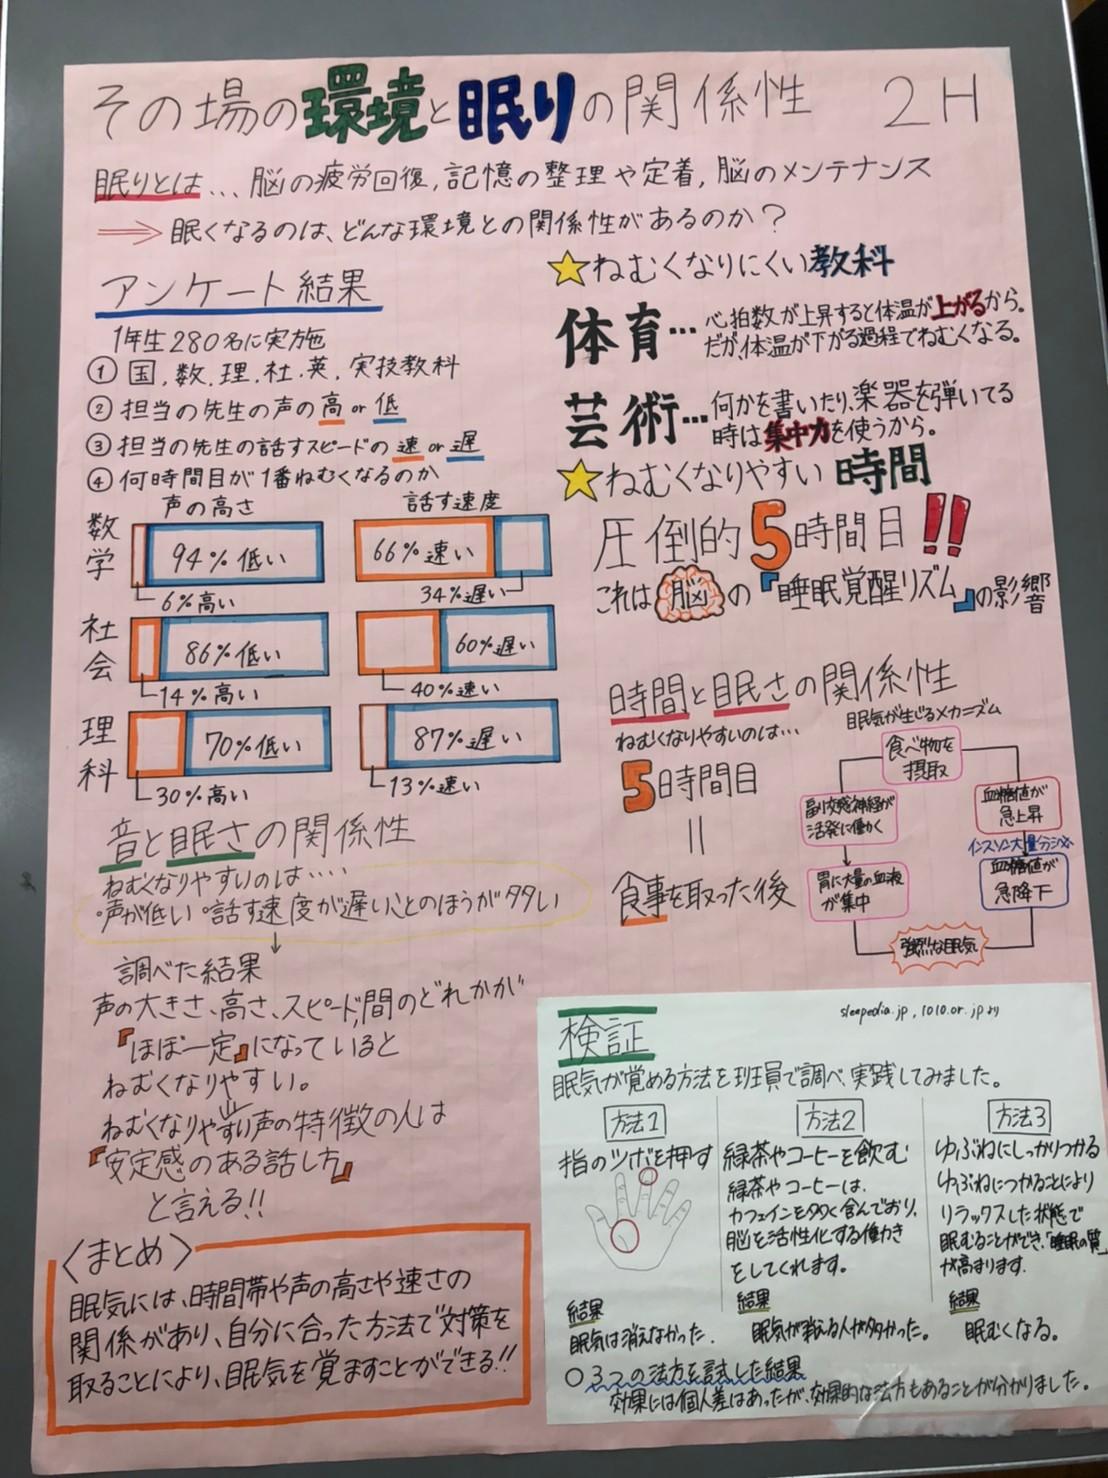 その場の環境と眠りの関係性 2H
眠りとは... 脳の疲労回復, 記憶の整理や定着, 脳のメンテナンス
⇒ 眠くなるのは、どんな環境との関係性があるのか?
アンケート結果
1年生280名に実施
① 国, 数, 理, 社, 英, 実技教科
② 担当の先生の声の高 or 低
③ 担当の先生の話すスピードの速 or 遅
④ 何時間目が1番ねむくなるのか
声の高さ 話す速度
数学
94% 低い
6% 高い
66% 速い
34% 遅い
社会
86% 低い
14% 高い
60% 遅い
40% 速い
理科
70% 低い
30% 高い
87% 遅い
13% 速い
音と眠さの関係性
ねむくなりやすいのは....
・声が低い ・話す速度が遅いことのほうが多い
↓
調べた結果
声の大きさ、高さ、スピード、間のどれかが
『ほぼ一定』になっていると
ねむくなりやすい。
ねむくなりやすい声の特徴の人は
『安定感のある話し方』
と言える!!
<まとめ>
眠気には、時間帯や声の高さや速さの
関係があり、自分に合った方法で対策を
取ることにより、眠気を覚ますことができる!!
★ねむくなりにくい教科
体育... 心拍数が上昇すると体温が上がるから。
だが、体温が下がる過程でねむくなる。
芸術... 何かを書いたり、楽器を弾いてる
時は集中力を使うから。
★ねむくなりやすい 時間
圧倒的5時間目!!
これは脳の『睡眠覚醒リズム』の影響
時間と眠さの関係性
ねむくなりやすいのは...
5時間目
||
食事を取った後
眠気が生じるメカニズム
食べ物を
摂取
副交感神経が
活発に働く
胃に大量の血液
が集中
血糖値が
急上昇
インスリン大量分泌
血糖値が
急降下
強烈な眠気
sleepedia.jp, 1010.or.jpより
検証
眠気が覚める方法を班員で調べ、実践してみました。
方法1
指のツボを押す
結果
眠気は消えなかった.
方法2
緑茶やコーヒーを飲む
緑茶やコーヒーは、
カフェインを多く含んでおり、
脳を活性化する働き
をしてくれます。
結果
眠気が消える人が多かった。
方法3
ゆぶねにしっかりつかる
ゆぶねにつかることにより
リラックスした状態で
眠むることができ、「睡眠の質」
が高まります.
結果
眠むくなる。
○3つの法方を試した結果
効果には個人差はあったが、効果的な法方もあることが分かりました。